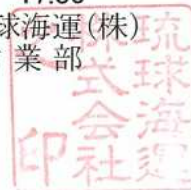 球海運(株)
業部
琉球海運
株式会社
印